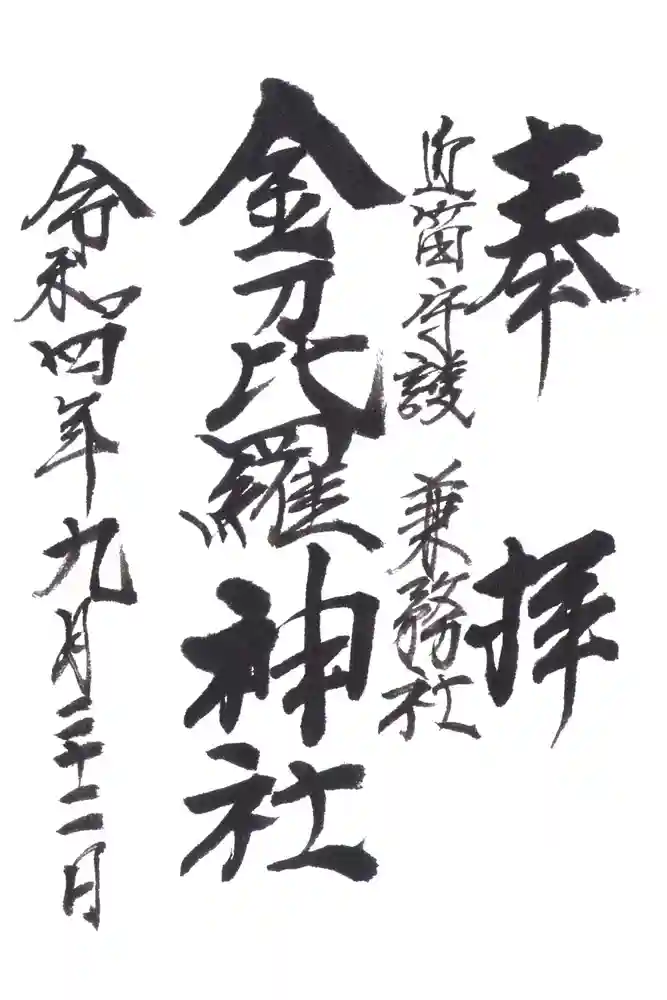 奉拝
近笛守護 兼務社
金刀比羅神社
令和四年九月二十二日